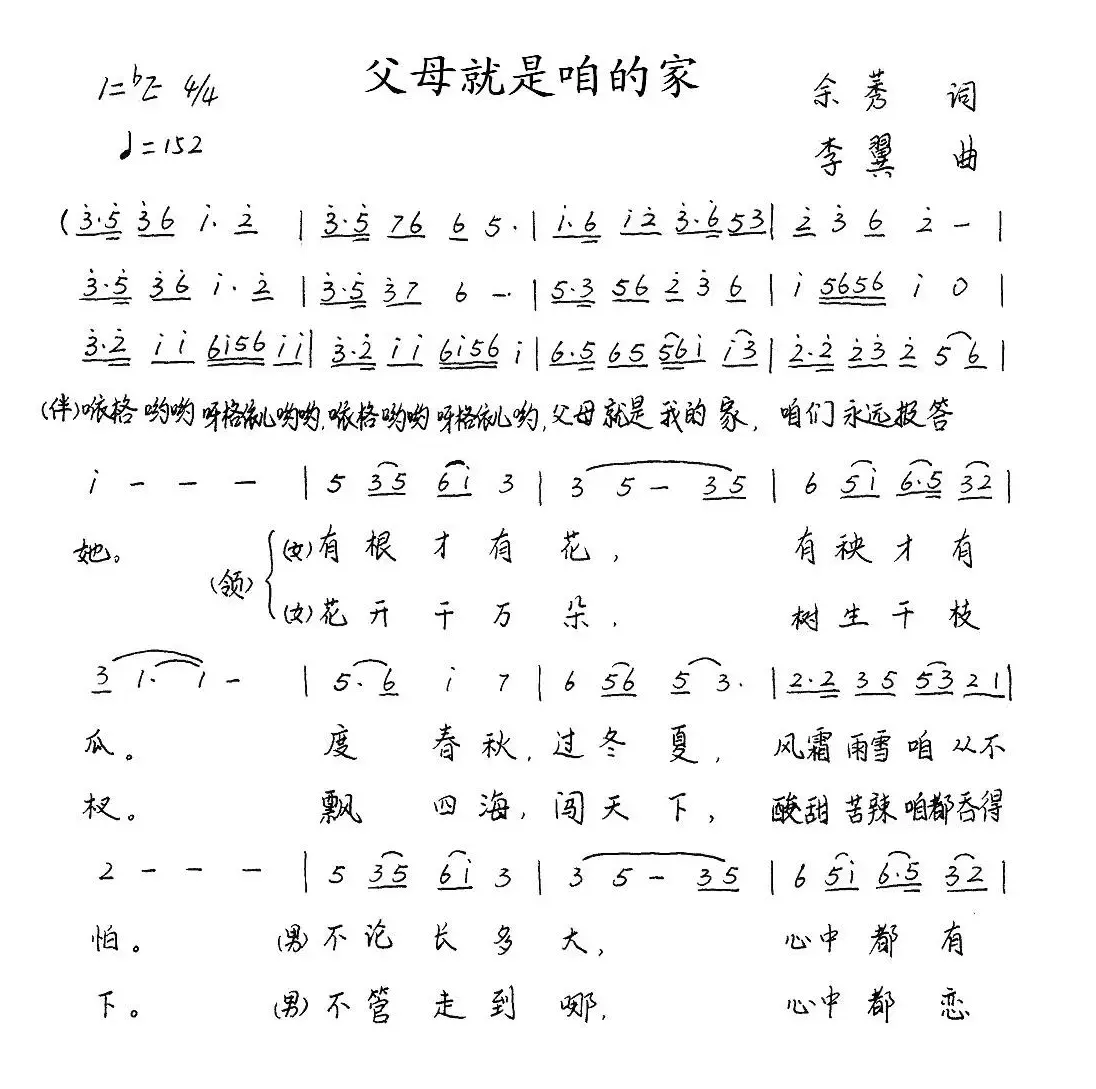 父母就是咱的家
1=♭E 4/4
余莠 词
♩=152
李翼 曲
(3̇·5̇ 3̇6 i·2̇ | 3̇·5̇ 76 6 5· | i·6 i2̇ 3̇·6̇ 53 | 2̇ 3̇ 6 2̇ - |
3̇·5̇ 3̇6̇ i·2̇ | 3̇·5̇ 3̇7 6 - | 5·3 56 2̇ 3̇ 6 | i 5656 i 0 |
3̇·2̇ i i 6i56 i i | 3̇·2̇ i i 6i56 i | 6·5 65 56i i3̇ | 2̇·2̇ 2̇3̇ 2̇ 5 6 |
(伴)咴格哟哟呀格依儿哟哟,咴格哟哟呀格依儿哟,父母就是我的家, 咱们永远报答
i - - - | 5 35 6i 3 | 3 5 - 35 | 6 5i 6·5 32 |
她。 (女)有根才有花, 有秧才有
(领)
(女)花开千万朵, 树生千枝
3 1· 1 - | 5·6 i 7 | 6 56 5 3· | 2·2 35 53 21 |
瓜。 度春秋,过冬夏, 风霜雨雪咱从不
杈。 飘四海,闯天下, 酸甜苦辣咱都吞得
2 - - - | 5 35 6i 3 | 3 5 - 35 | 6 5i 6·5 32 |
怕。 (男)不论长多大, 心中都有
下。 (男)不管走到哪, 心中都恋